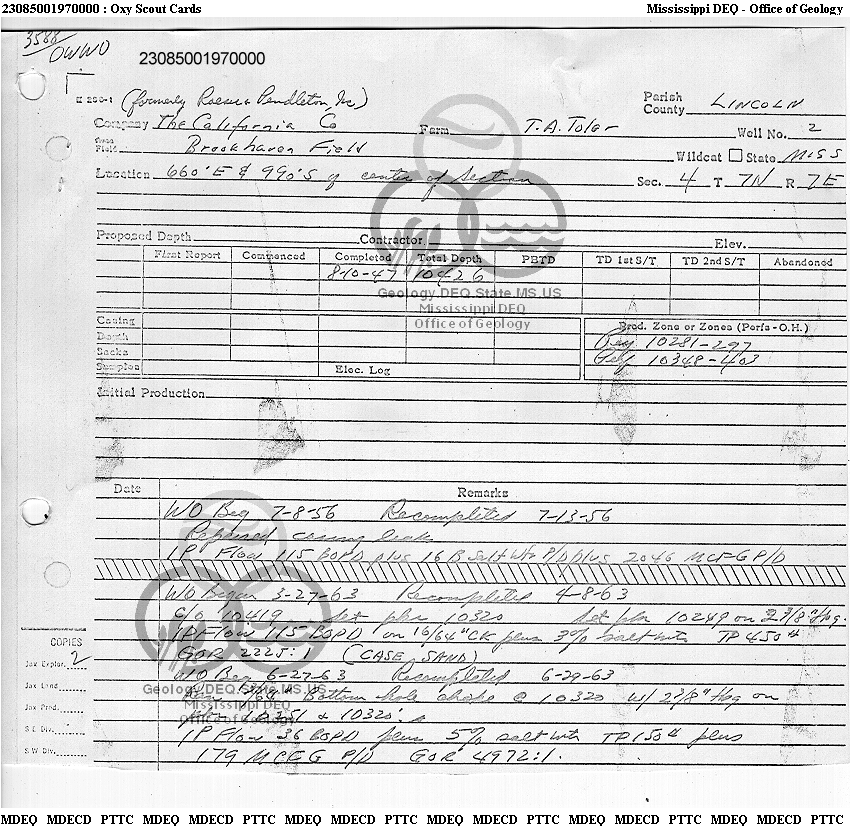 23085001970000 : Oxy Scout Cards Mississippi DEQ - Office of Geology
3588
OWWO
23085001970000
(formerly Roeser & Pendleton, Inc)
Parish
County LINCOLN
Company The California Co Farm T.A. Toler Well No. 2
Field Brookhaven Field Wildcat State MISS
Location 660' E & 990' S of center of Section Sec. 4 T 7N R 7E
Proposed Depth Contractor Elev.
First Report Commenced Completed Total Depth PBTD TD 1st S/T TD 2nd S/T Abandoned
8-10-47 10426
Geology.DEQ.State.MS.US
Mississippi DEQ
Office of Geology
Casing Prod. Zone or Zones (Perfs - O.H.)
Depth 10281-297
Sacks 10348-403
Samples Elec. Log
Initial Production
Date Remarks
WO Beg 7-8-56 Recompleted 7-13-56
Repaired casing leak
IP Flow 115 BOPD plus 16 B salt wtr P/D plus 2046 MCFG P/D
WO Began 3-27-63 Recompleted 4-8-63
C/O 10419 set pkr 10320 set pkr 10249 on 2 3/8" tbg.
IP Flow 115 BOPD on 16/64" CK plus 3% salt wtr TP 450#
GOR 2225: (CASE SAND)
WO Beg 6-27-63 Recompleted 6-29-63
Ran Bottom hole choke @ 10320 w/ 2 3/8" tbg on
10351 & 10320'
IP Flow 36 BOPD plus 5% salt wtr TP 150# plus
179 MCFG P/D GOR 4972:1.
COPIES
Jax Explor. 2
Jax Land
Jax Prod.
S E Div.
S W Div.
Geology.DEQ.State.MS.US
Mississippi DEQ
Office of Geology
MDEQ MDECD PTTC MDEQ MDECD PTTC MDEQ MDECD PTTC MDEQ MDECD PTTC MDEQ MDECD PTTC MDEQ MDECD PTTC